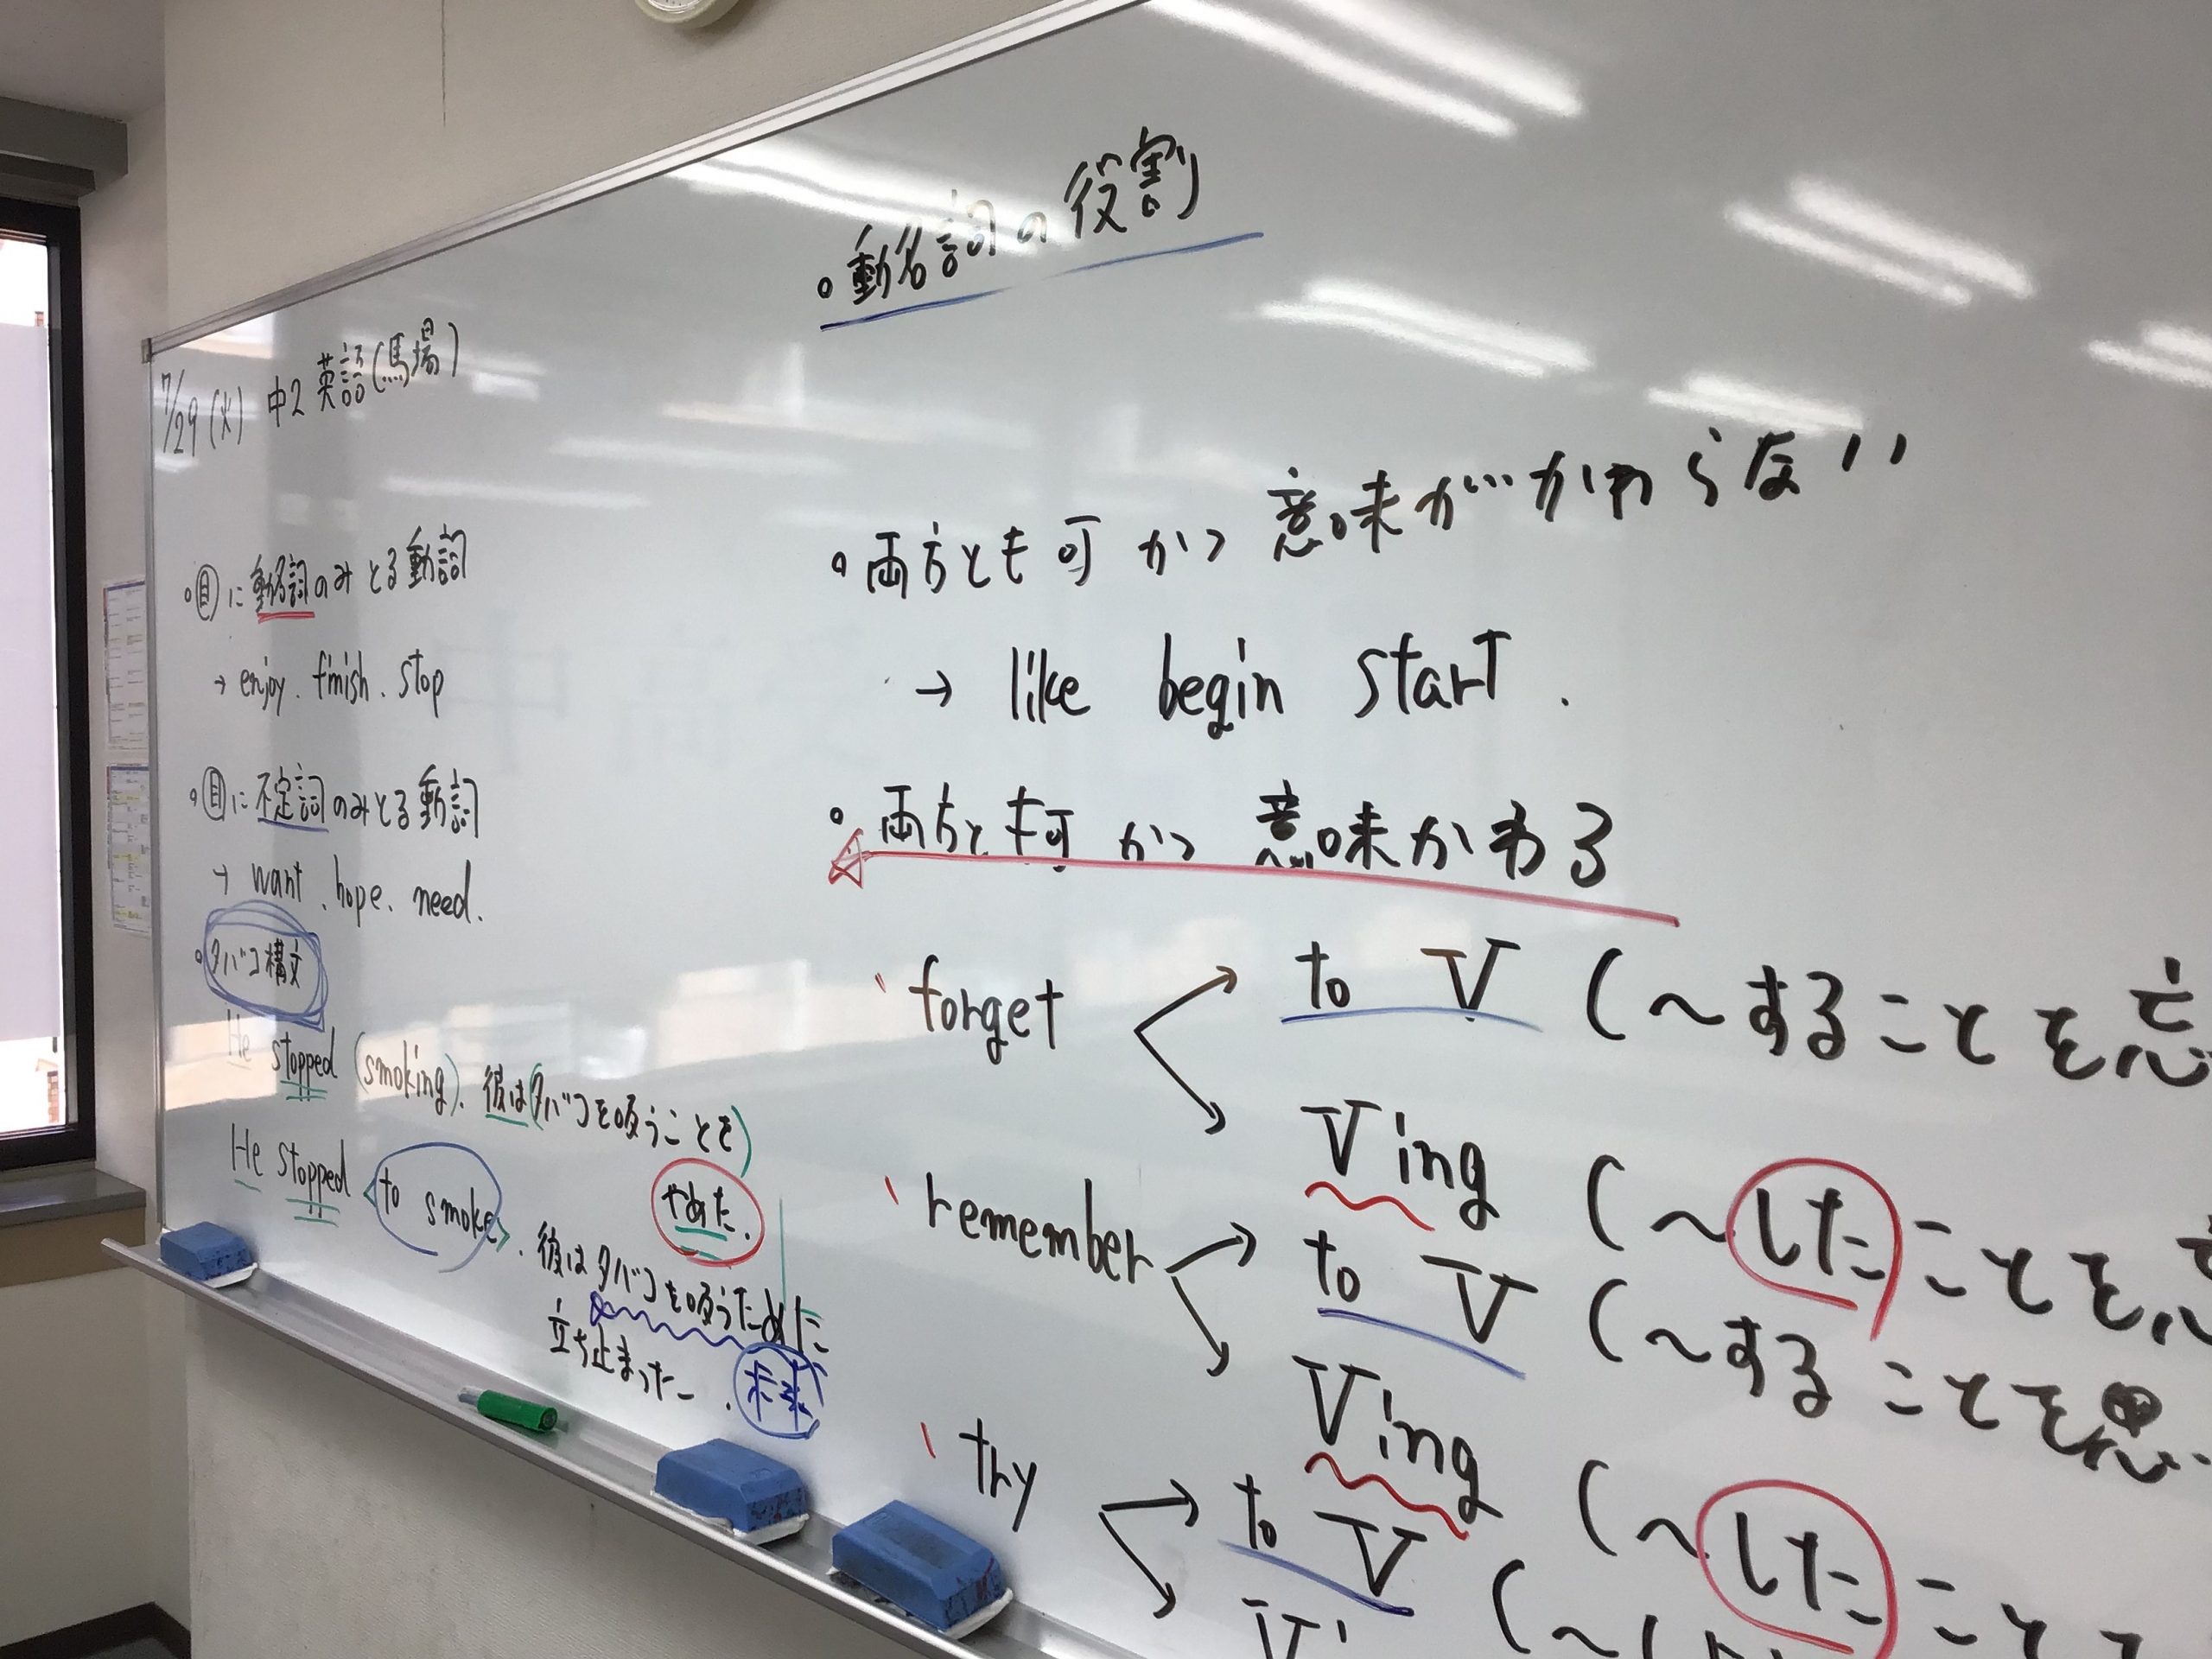 7/29(火) 中2 英語(馬場)
。目に動名詞のみとる動詞
→ enjoy. finish. stop
。目に不定詞のみとる動詞
→ want. hope. need.
。タバコ構文
He stopped (smoking). 彼は(タバコを吸うことを)
やめた.
He stopped <to smoke>. 彼はタバコを吸うために
立ち止まった.
。動名詞の役割
。両方とも可 かつ 意味が かわらない
→ like begin start.
。両方とも可 かつ 意味かわる
forget
to V (~することを忘
Ving (~したことを忘
remember
to V (~することを思
Ving (~したこと
try
to V